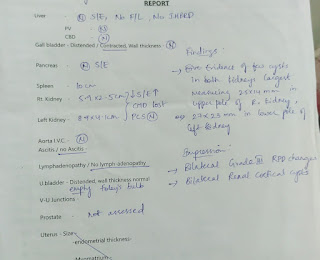 REPORT
Liver - (N) S/E, No F/L, No IHBRD
PV - (N)
CBD (N)
Gall bladder - Distended / Contracted, Wall thickness - (N)
Pancreas - (N), S/E
Spleen 10cm
Rt. Kidney - 5.9x2.5cm } S/E ↑
CMD lost
Left Kidney - 8x4.1cm PCS (N)
Aorta I.V.C. (N)
Ascitis / no Ascitis
Lymphadenopathy / No lymph adenopathy
U.bladder - Distended, wall thickness normal
empty foley's bulb
V-U Junctions
Prostate - not assessed
Uterus - Size
-endometrial thickness-
-Myometrium
Findings:-
→ evidence of few cysts
in both kidneys largest
measuring 25x24 mm in
upper pole of R. kidney,
→ 27x23 mm in lower pole of
left kidney
Impression:-
→ Bilateral Grade III RPD changes
→ Bilateral Renal cortical cysts